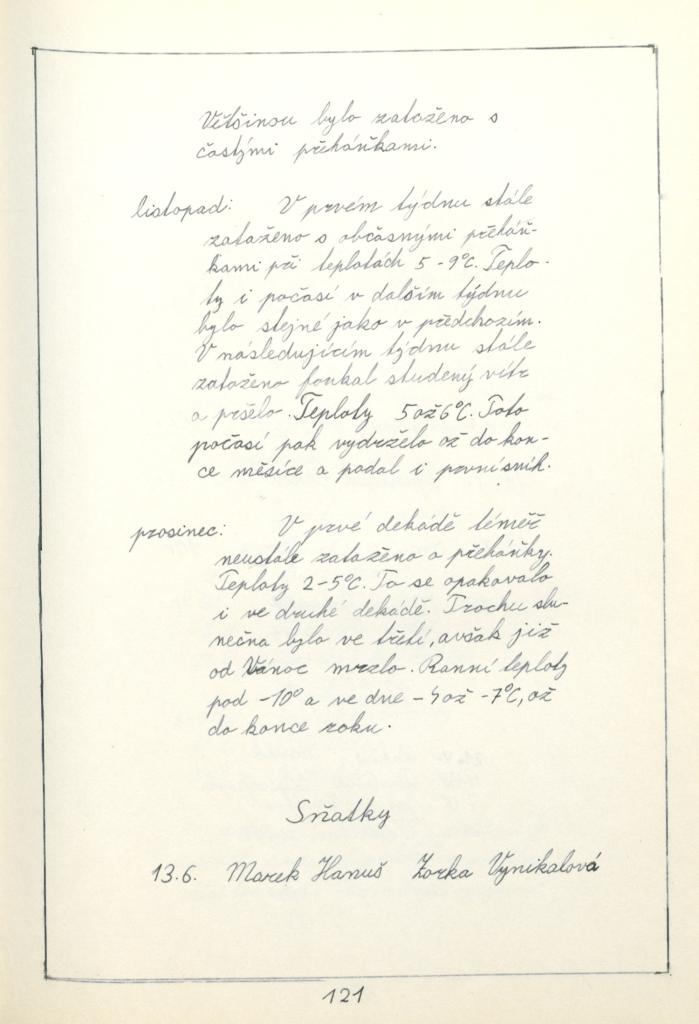 Většinou bylo zataženo s
častými přeháňkami.
listopad: V prvém týdnu stále
zataženo s občasnými přeháň-
kami při teplotách 5-9°C. Teplo-
ty i počasí v dalším týdnu
bylo stejné jako v předchozím.
V následujícím týdnu stále
zataženo foukal studený vítr
a pršelo. Teploty 5 až 6°C. Toto
počasí pak vydrželo až do kon-
ce měsíce a padal i první sníh.
prosinec: V prvé dekádě téměř
neustále zataženo a přeháňky.
Teploty 2-5°C. To se opakovalo
i ve druhé dekádě. Trochu slu-
nečna bylo ve třetí, avšak již
od Vánoc mrzlo. Ranní teploty
pod -10° a ve dne -4 až -7°C, až
do konce roku.
Sňatky
13.6. Marek Hanuš Zorka Vynikalová
121